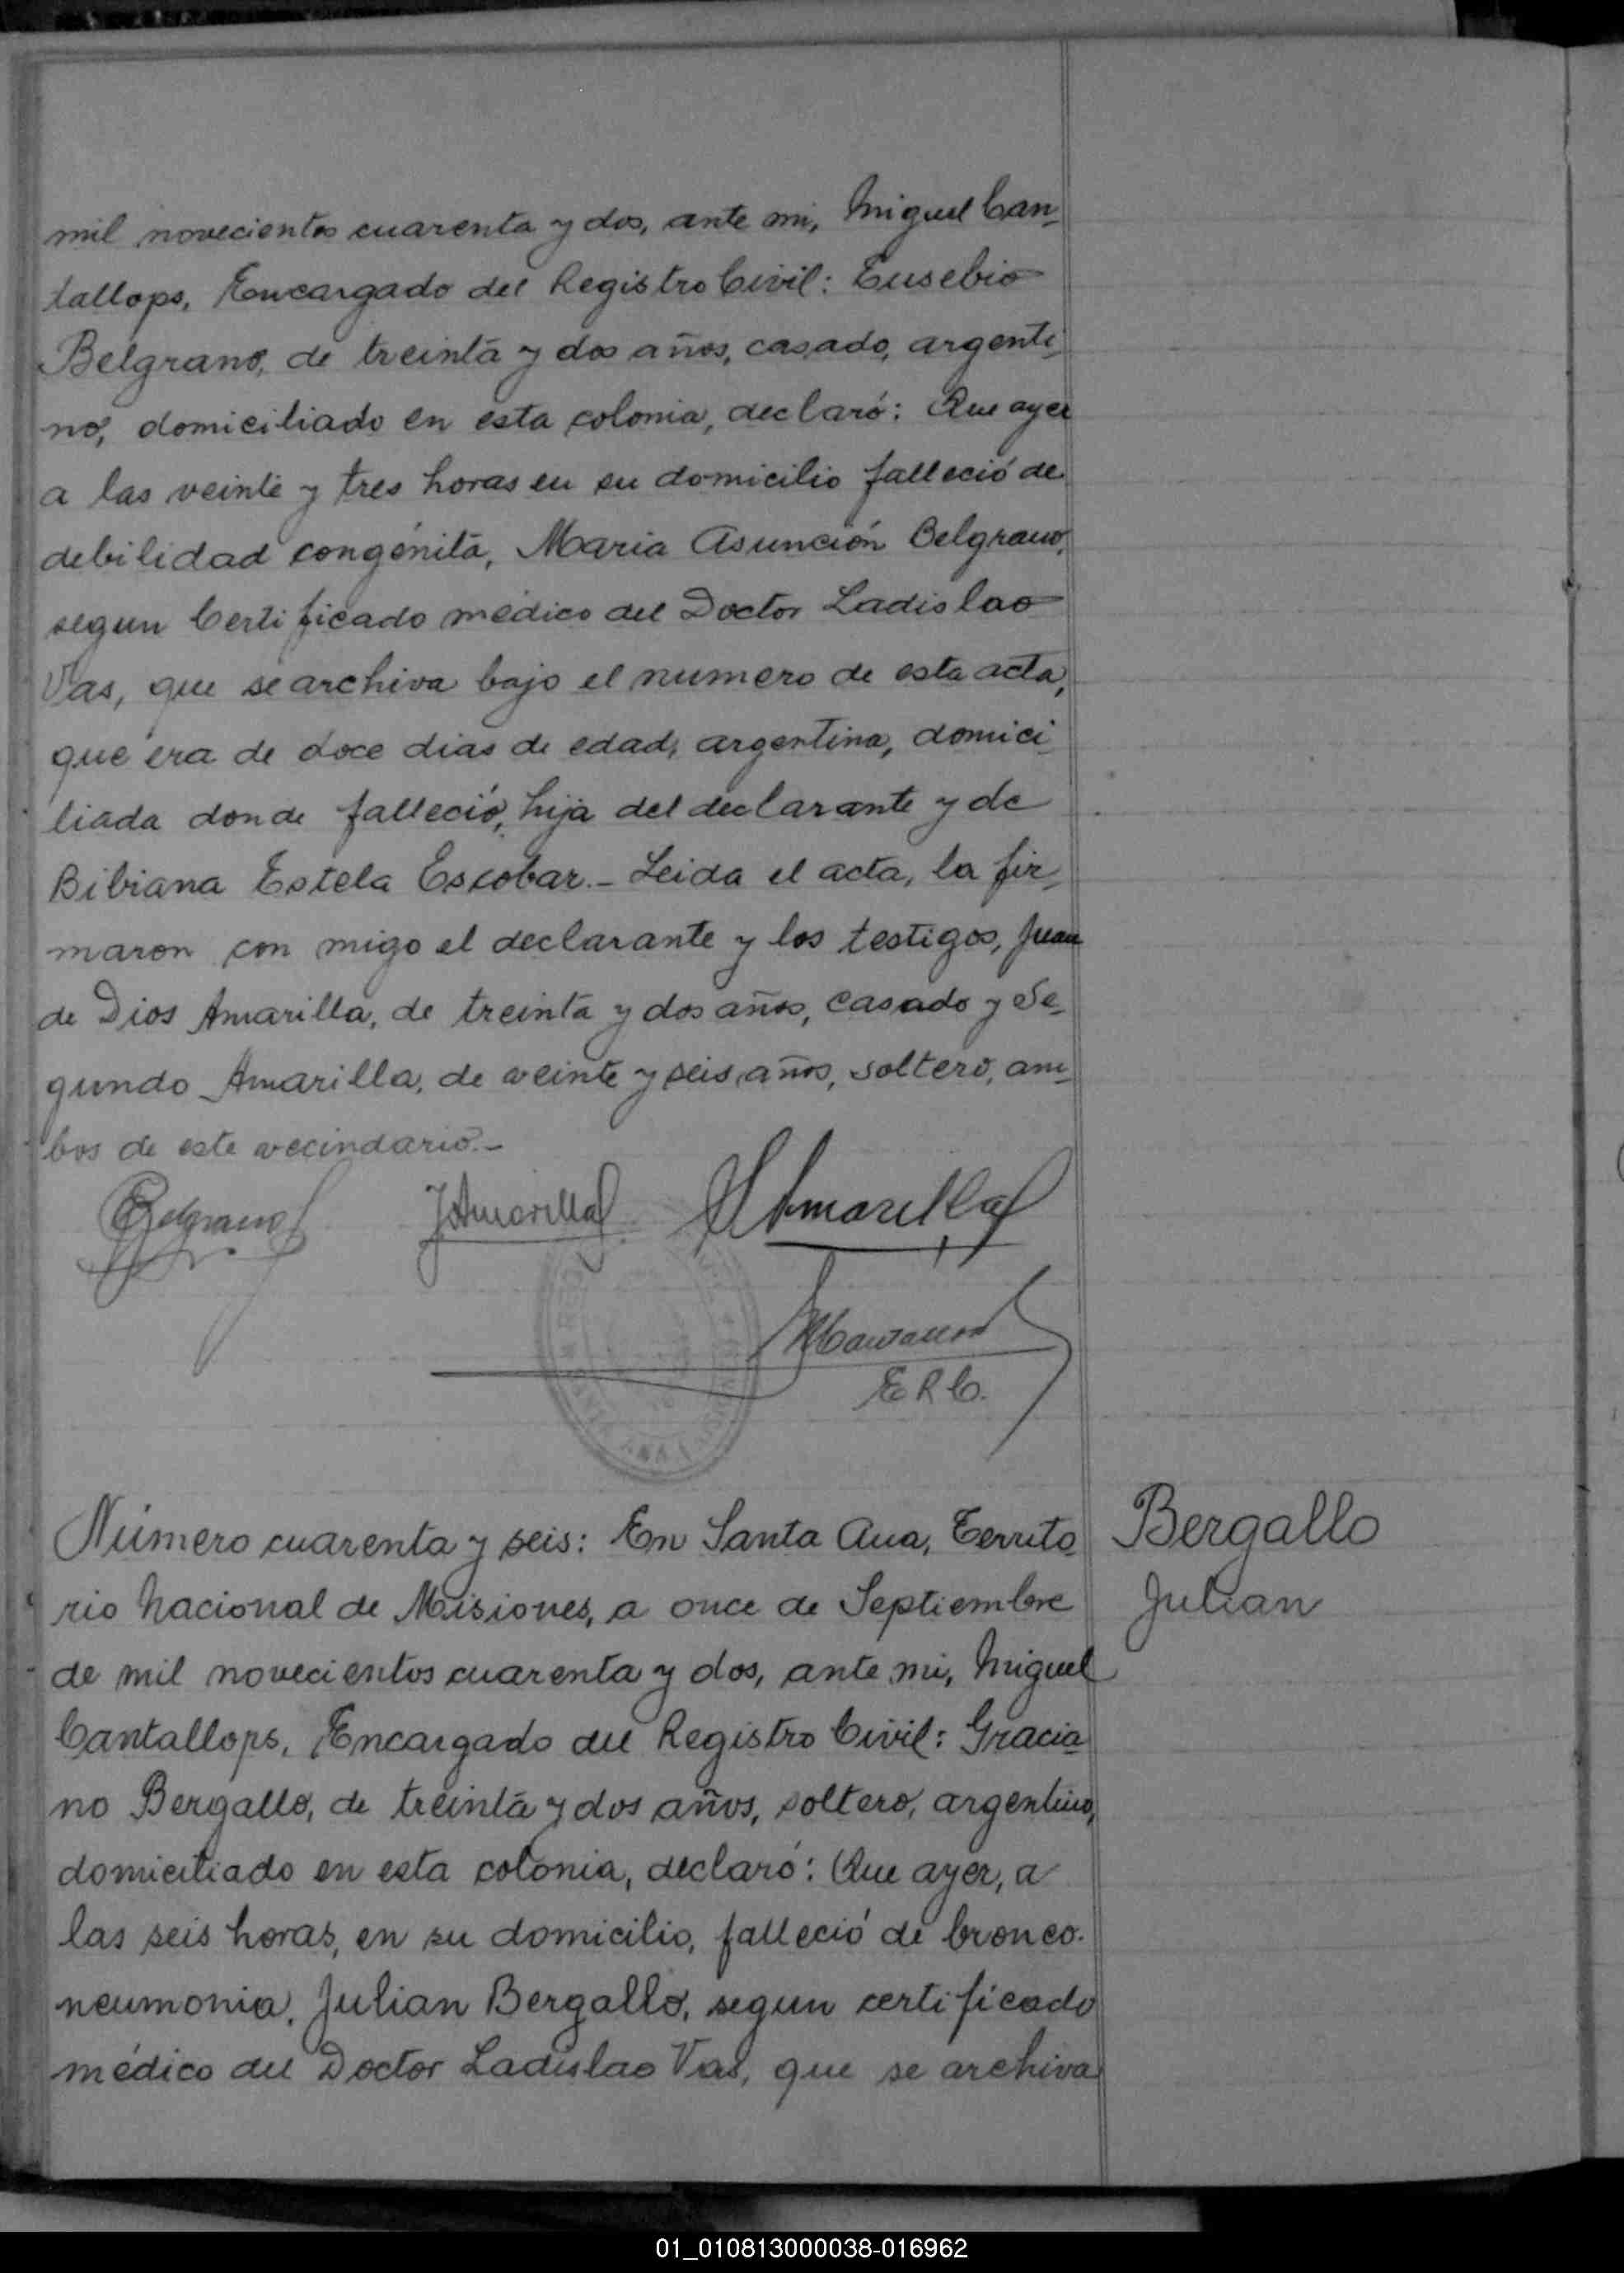 mil novecientos cuarenta y dos, ante mi, Miguel Can-
tallops, Encargado del Registro Civil: Eusebio
Belgrano, de treinta y dos años, casado, argenti-
no, domiciliado en esta colonia, declaró: Que ayer
a las veinte y tres horas en su domicilio falleció de
debilidad congénita, Maria Asunción Belgrano,
segun Certificado médico del Doctor Ladislao
Vas, que se archiva bajo el numero de esta acta,
que era de doce dias de edad, argentina, domici-
liada donde falleció, hija del declarante y de
Bibiana Estela Escobar.- Leida el acta, la fir-
maron con migo el declarante y los testigos, Juan
de Dios Amarilla, de treinta y dos años, casado y Se-
gundo Amarilla, de veinte y seis años, soltero, am-
bos de este vecindario.-
EBelgrano JAmarilla SAmarilla
MCantallops
E R C.
Número cuarenta y seis: En Santa Ana, Territo-
rio Nacional de Misiones, a once de Septiembre
de mil novecientos cuarenta y dos, ante mi, Miguel
Cantallops, Encargado del Registro Civil: Gracia-
no Bergallo, de treinta y dos años, soltero, argentino,
domiciliado en esta colonia, declaró: Que ayer, a
las seis horas, en su domicilio, falleció de bronco-
neumonia, Julian Bergallo, segun certificado
médico del Doctor Ladislao Vas, que se archiva
Bergallo
Julian
01_010813000038-016962